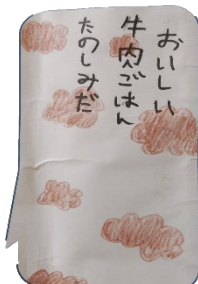 おいしい
牛肉ごはん
たのしみだ